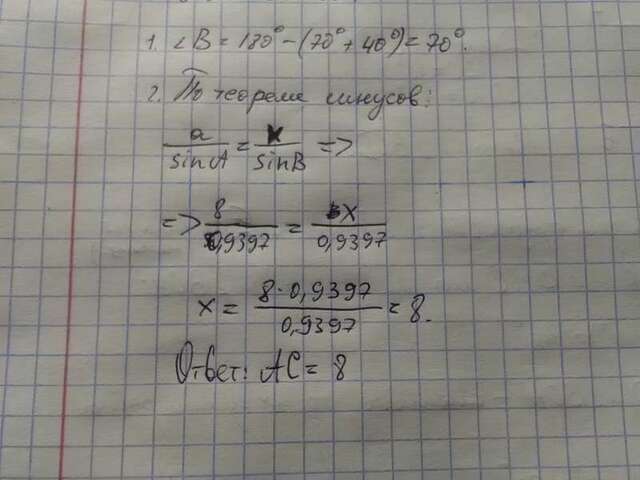 1. ∠B = 180° - (70° + 40°) = 70°.
2. По теореме синусов:
a/sin A = x/sin B =>
=> 8/0,9397 = x/0,9397
x = 8·0,9397/0,9397 = 8.
Ответ: AC = 8